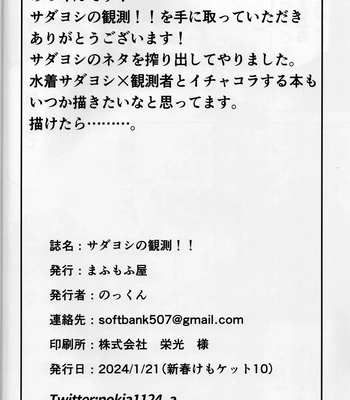 サダヨシの観測！！を手に取っていただき
ありがとうございます！
サダヨシのネタを搾り出してやりました。
水着サダヨシ×観測者とイチャコラする本も
いつか描きたいなと思ってます。
描けたら………。
誌名：サダヨシの観測！！
発行：まふもふ屋
発行者：のっくん
連絡先：softbank507@gmail.com
印刷所：株式会社　栄光　様
発行日：2024/1/21（新春けもケット10）
Twitter:nokia1124_a